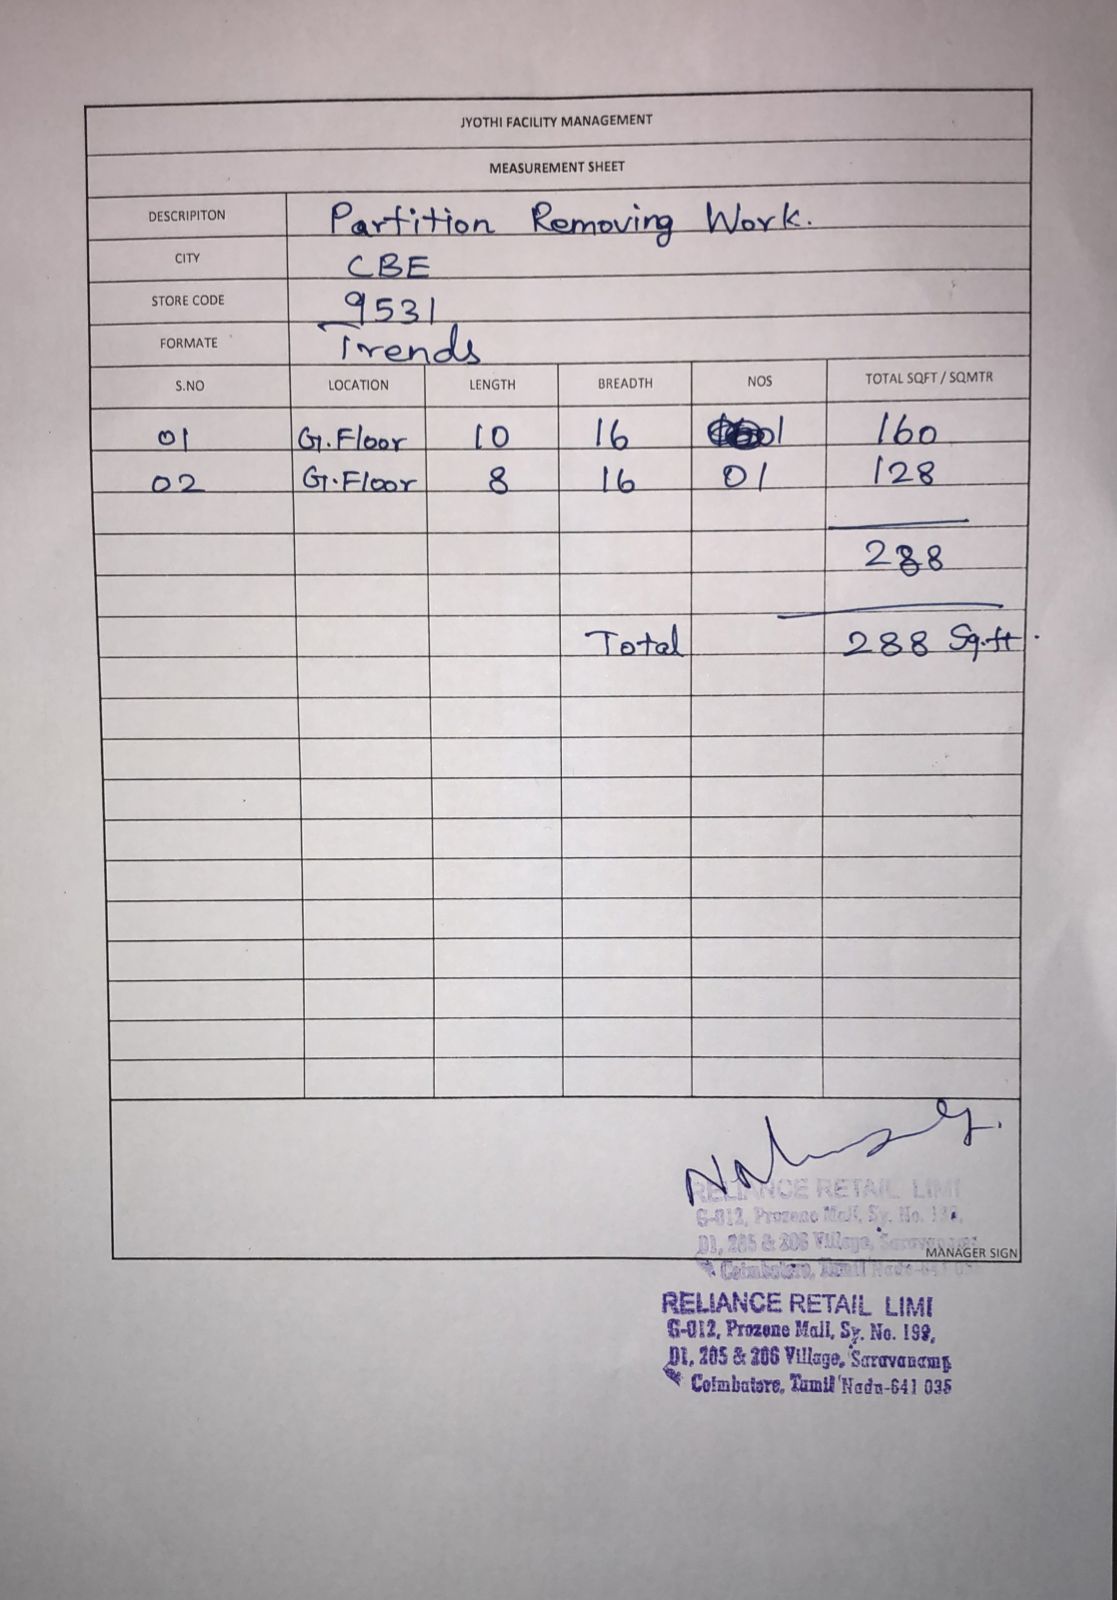 JYOTHI FACILITY MANAGEMENT
MEASUREMENT SHEET
DESCRIPITON Partition Removing Work.
CITY CBE
STORE CODE 9531
FORMATE Trends
S.NO LOCATION LENGTH BREADTH NOS TOTAL SQFT / SQMTR
01 G.Floor 10 16 01 160
02 G.Floor 8 16 01 128
288
Total 288 Sq.ft.
RELIANCE RETAIL LIMI
G-012, Prozone Mall, Sy. No. 199,
D1, 205 & 206 Village,
Coimbatore, Tamil Nadu-641
MANAGER SIGN
RELIANCE RETAIL LIMI
G-012, Prozone Mall, Sy. No. 199,
D1, 205 & 206 Village, Saravanamp
Coimbatore, Tamil Nadu-641 035